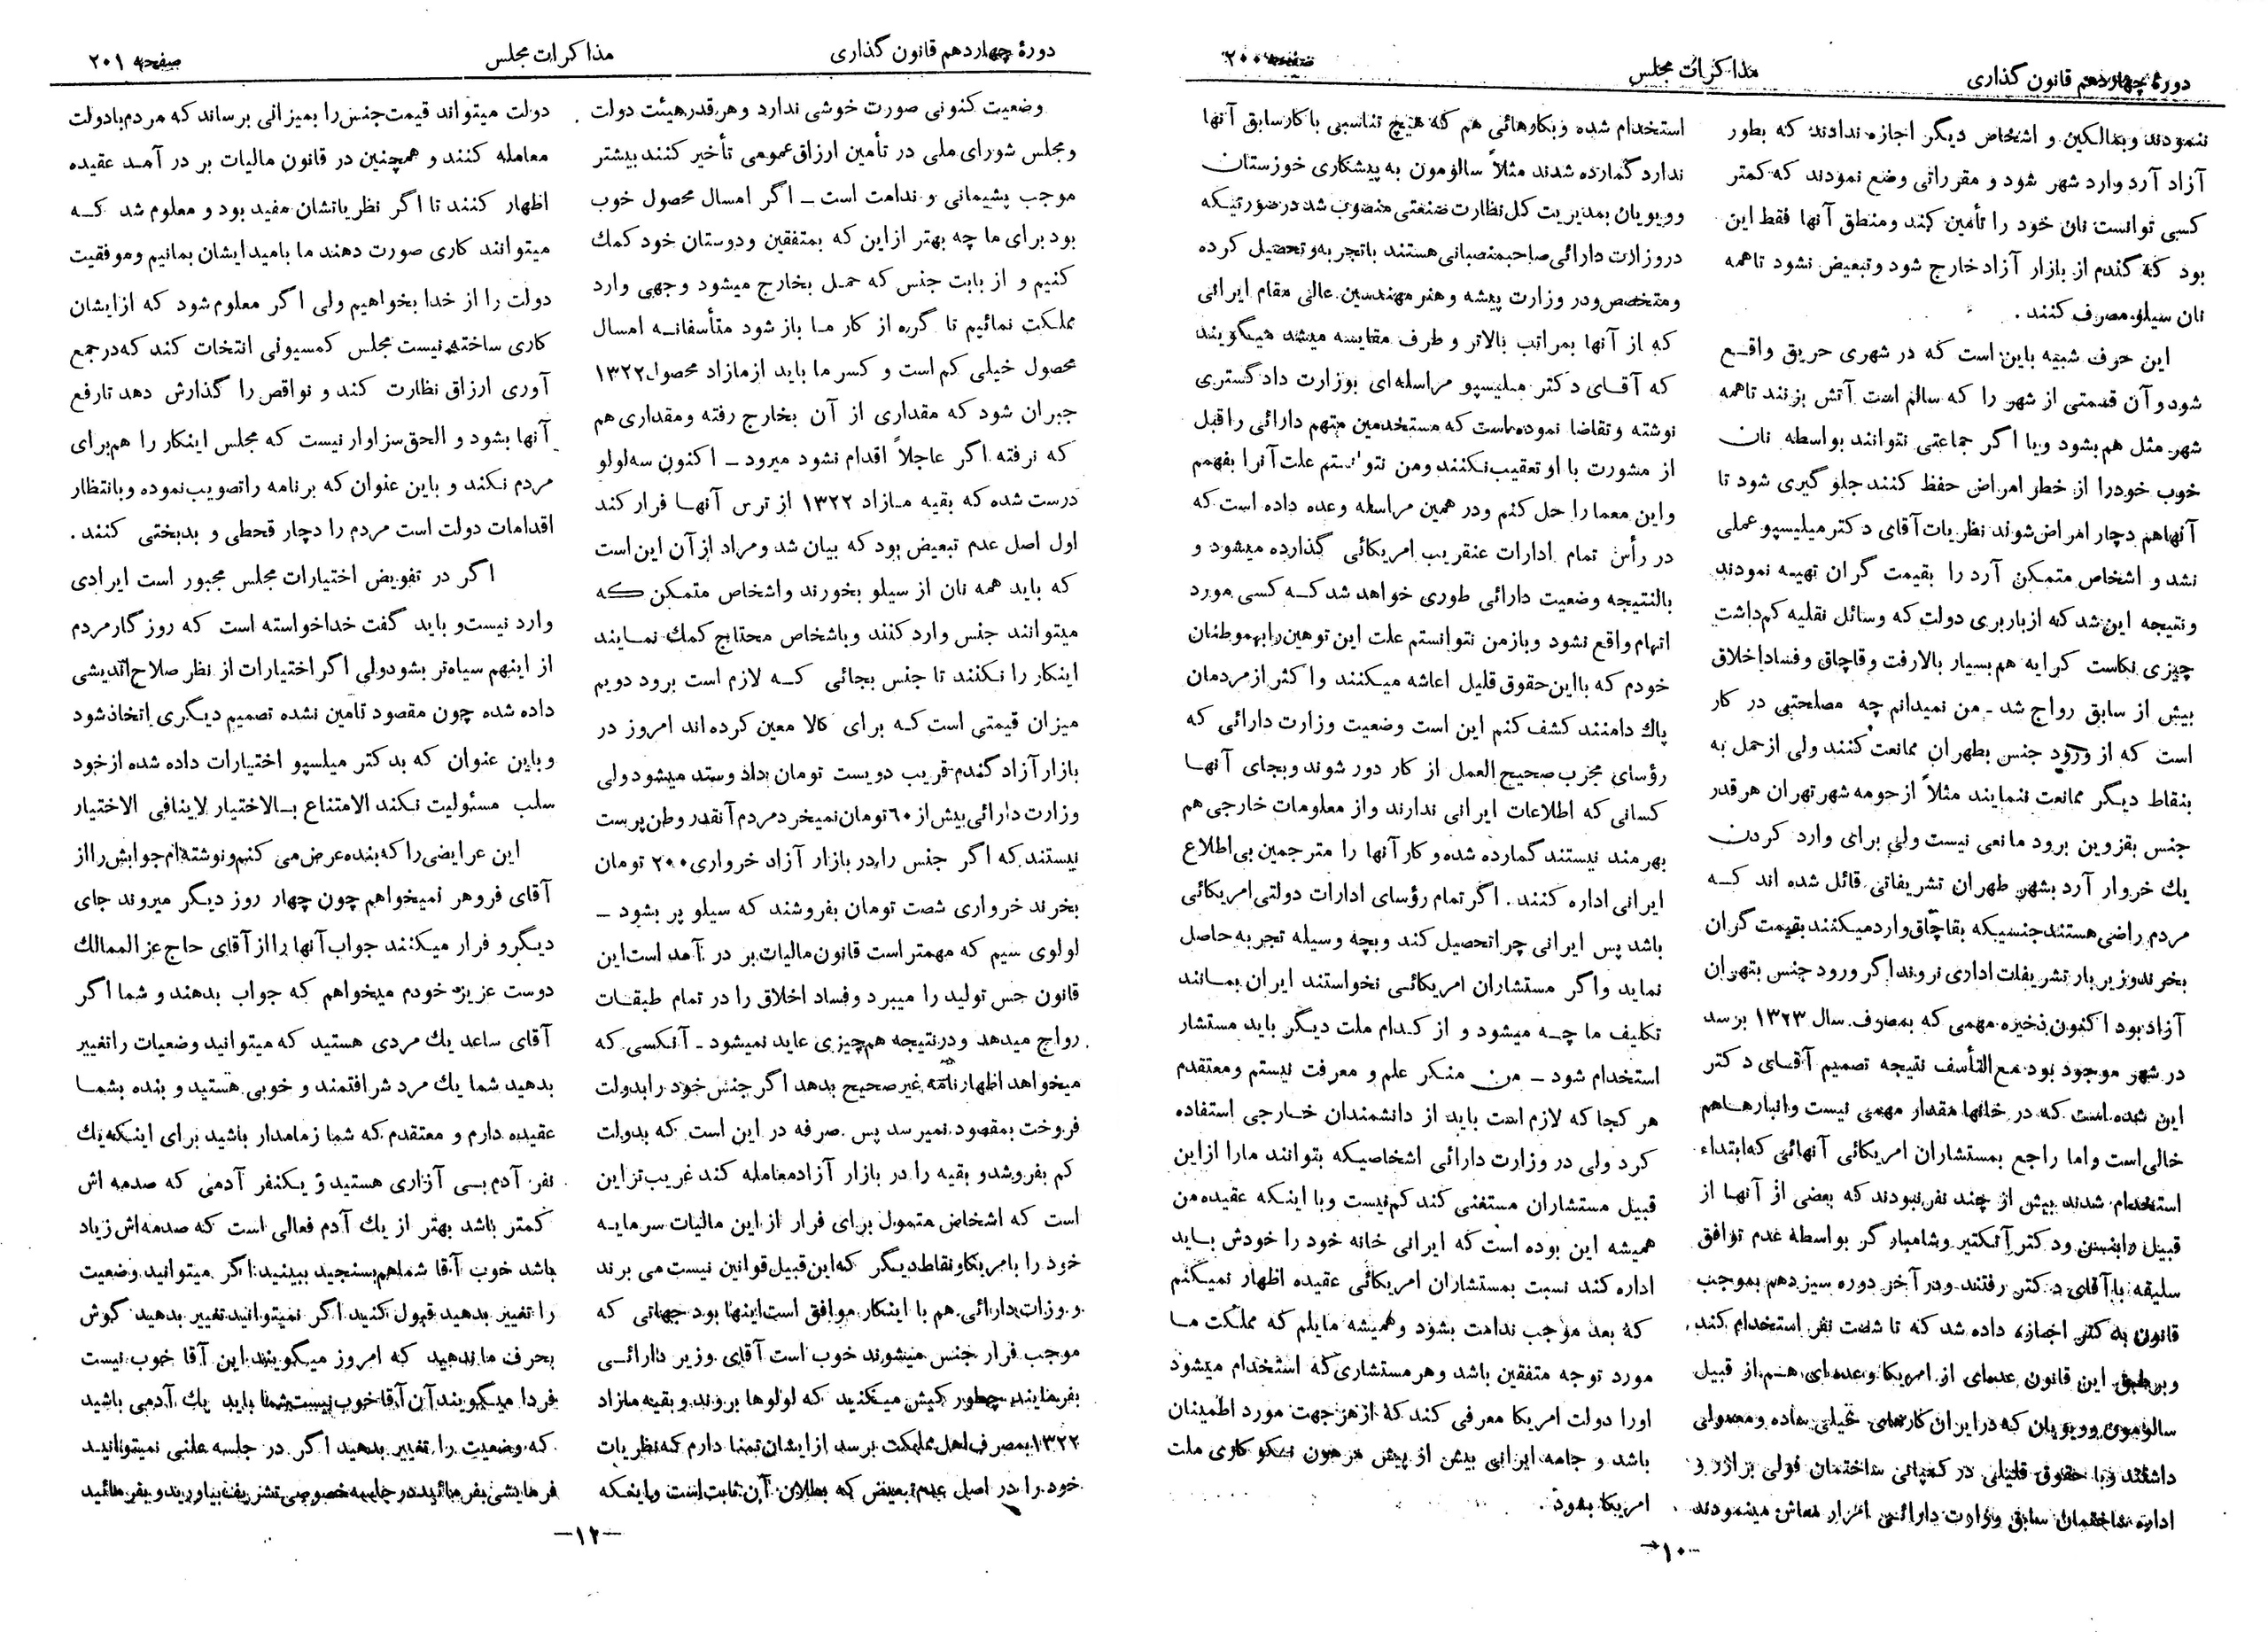 دورهٔ چهاردهم قانون گذاری
مذاکرات مجلس
صفحه ۲۰۰
ننمودند وبمالکین و اشخاص دیگر اجازه ندادند که بطور
آزاد آرد وارد شهر شود و مقرراتی وضع نمودند که کمتر
کسی توانست نان خود را تأمین کند ومنطق آنها فقط این
بود که گندم از بازار آزاد خارج شود وتبعیض نشود تاهمه
نان سیلو مصرف کنند .
این حرف شبیه باین است که در شهری حریق واقع
شود و آن قسمتی از شهر را که سالم است آتش بزنند تاهمه
شهر مثل هم بشود ویا اگر جماعتی نتوانند بواسطه نان
خوب خودرا از خطر امراض حفظ کنند جلو گیری شود تا
آنهاهم دچار امراض شوند نظریات آقای دکتر میلیسپو عملی
نشد و اشخاص متمکن آرد را بقیمت گران تهیه نمودند
ونتیجه این شد که ازباربری دولت که وسائل نقلیه کم داشت
چیزی نکاست کرایه هم بسیار بالارفت وقاچاق وفساداخلاق
بیش از سابق رواج شد - من نمیدانم چه مصلحتی در کار
است که از ورود جنس بطهران ممانعت کنند ولی ازحمل به
بنقاط دیگر ممانعت ننمایند مثلاً ازحومه شهر تهران هرقدر
جنس بقزوین برود مانعی نیست ولی برای وارد کردن
یك خروار آرد بشهر طهران تشریفاتی قائل شده اند که
مردم راضی هستند جنسیکه بقاچاق واردمیکنند بقیمت گران
بخرندوزیر بار تشریفات اداری نروند اگر ورود جنس بتهران
آزاد بود اکنون ذخیره مهمی که بمصرف سال ۱۳۲۳ برسد
در شهر موجود بود مع التأسف نتیجه تصمیم آقای دکتر
این شده است که در خانها مقدار مهمی نیست وانبارهاهم
خالی است واما راجع بمستشاران امریکائی آنهائی که ابتداء
استخدام شدند بیش از چند نفر نبودند که بعضی از آنها از
قبیل وایسن ودکتر آتکتیر وشامبار گر بواسطهٔ عدم توافق
سلیقه باآقای دکتر رفتند ودر آخر دوره سیزدهم بموجب
قانون به دکتر اجازه داده شد که تا شصت نفر استخدام کند
وبرطبق این قانون عده‌ای از امریکا وعده‌ای هم از قبیل
سالومون وویویان که درایران کارهای خیلی ساده ومعمولی
داشتند وبا حقوق قلیلی در کمپانی ساختمان فولی برازر و
اداره ساختمان سابق وزارت دارائی امرار معاش مینمودند
استخدام شده وبکارهائی هم که هیچ تناسبی با کارسابق آنها
ندارد گمارده شدند مثلاً سالومون به پیشکاری خوزستان
وویویان بمدیریت کل نظارت صنعتی منصوب شد درصورتیکه
دروزارت دارائی صاحبمنصبانی هستند باتجربه وتحصیل کرده
ومتخصص ودر وزارت پیشه وهنر مهندسین عالی مقام ایرانی
که از آنها بمراتب بالاتر و طرف مقایسه میشد میگویند
که آقای دکتر میلیسپو مراسله‌ای بوزارت دادگستری
نوشته وتقاضا نموده است که مستخدمین متهم دارائی راقبل
از مشورت با او تعقیب نکنند ومن نتوانستم علت آنرا بفهمم
واین معما را حل کنم ودر همین مراسله وعده داده است که
در رأس تمام ادارات عنقریب امریکائی گذارده میشود و
بالنتیجه وضعیت دارائی طوری خواهد شد که کسی مورد
اتهام واقع نشود وبازمن نتوانستم علت این توهین رابهموطنان
خودم که بااین حقوق قلیل اعاشه میکنند واکثر ازمردمان
پاك دامنند کشف کنم این است وضعیت وزارت دارائی که
رؤسای مجرب صحیح العمل از کار دور شوند وبجای آنها
کسانی که اطلاعات ایرانی ندارند واز معلومات خارجی هم
بهرمند نیستند گمارده شده و کار آنها را مترجمین بی اطلاع
ایرانی اداره کنند . اگر تمام رؤسای ادارات دولتی امریکائی
باشد پس ایرانی چراتحصیل کند وبچه وسیله تجربه حاصل
نماید واگر مستشاران امریکائی نخواستند ایران بمانند
تکلیف ما چه میشود و از کدام ملت دیگر باید مستشار
استخدام شود – من منکر علم و معرفت نیستم ومعتقدم
هر کجا که لازم است باید از دانشمندان خارجی استفاده
کرد ولی در وزارت دارائی اشخاصیکه بتوانند مارا ازاین
قبیل مستشاران مستغنی کند کم نیست وبا اینکه عقیده من
همیشه این بوده است که ایرانی خانه خود را خودش باید
اداره کند نسبت بمستشاران امریکائی عقیده اظهار نمیکنم
که بعد موجب ندامت بشود وهمیشه مایلم که مملکت ما
مورد توجه متفقین باشد وهر مستشاری که استخدام میشود
اورا دولت امریکا معرفی کند که ازهرجهت مورد اطمینان
باشد و جامه ایرانی بیش از پیش مرهون نیکو کاری ملت
امریکا بشود .
–۱۰–
دورهٔ چهاردهم قانون گذاری
مذاکرات مجلس
صفحه ۲۰۱
وضعیت کنونی صورت خوشی ندارد وهرقدرهیئت دولت
ومجلس شورای ملی در تأمین ارزاق عمومی تأخیر کنند بیشتر
موجب پشیمانی و ندامت است – اگر امسال محصول خوب
بود برای ما چه بهتر ازاین که بمتفقین ودوستان خود کمك
کنیم و از بابت جنس که حمل بخارج میشود وجهی وارد
مملکت نمائیم تا گره از کار ما باز شود متأسفانه امسال
محصول خیلی کم است و کسر ما باید ازمازاد محصول ۱۳۲۲
جبران شود که مقداری از آن بخارج رفته ومقداری هم
که نرفته اگر عاجلاً اقدام نشود میرود – اکنون سه لولو
درست شده که بقیه مازاد ۱۳۲۲ از ترس آنها فرار کند
اول اصل عدم تبعیض بود که بیان شد و مراد از آن این است
که باید همه نان از سیلو بخورند واشخاص متمکن که
میتوانند جنس وارد کنند وباشخاص محتاج کمك نمایند
اینکار را نکنند تا جنس بجائی که لازم است برود دویم
میزان قیمتی است که برای کالا معین کرده‌اند امروز در
بازار آزاد گندم قریب دویست تومان داد وستد میشود ولی
وزارت دارائی بیش از ۶۰ تومان نمیخرد مردم آنقدر وطن پرست
نیستند که اگر جنس را در بازار آزاد خرواری ۲۰۰ تومان
بخرند خرواری شصت تومان بفروشند که سیلو پر بشود –
لولوی سیم که مهمتر است قانون مالیات بر در آمد است این
قانون جس تولید را میبرد وفساد اخلاق را در تمام طبقات
رواج میدهد ودرنتیجه هم چیزی عاید نمیشود - آنکسی که
میخواهد اظهار نامه غیر صحیح بدهد اگر جنس خود رابدولت
فروخت بمقصود نمیرسد پس صرفه در این است که بدولت
کم بفروشد و بقیه را در بازار آزاد معامله کند غریب تر این
است که اشخاص متمول برای فرار از این مالیات سرمایه
خود را بامریکا ونقاط دیگر که این قبیل قوانین نیست می برند
و وزات دارائی هم با اینکار موافق است اینها بود جهاتی که
موجب فرار جنس میشوند خوب است آقای وزیر دارائی
بفرمایند چطور کیش میکنید که لولوها بروند و بقیه مازاد
۱۳۲۲ بمصرف اهل مملکت برسد ازایشان تمنا دارم که نظریات
خود را در اصل عدم تبعیض که بطلان آن ثابت است واینکه
دولت میتواند قیمت جنس را بمیزانی برساند که مردم بادولت
معامله کنند و همچنین در قانون مالیات بر در آمد عقیده
اظهار کنند تا اگر نظریاتشان مفید بود و معلوم شد که
میتوانند کاری صورت دهند ما بامید ایشان بمانیم وموفقیت
دولت را از خدا بخواهیم ولی اگر معلوم شود که ازایشان
کاری ساخته نیست مجلس کمسیونی انتخات کند که در جمع
آوری ارزاق نظارت کند و نواقص را گذارش دهد تارفع
آنها بشود و الحق سزاوار نیست که مجلس اینکار را هم برای
مردم نکند و باین عنوان که برنامه راتصویب نموده وبانتظار
اقدامات دولت است مردم را دچار قحطی و بدبختی کنند .
اگر در تفویض اختیارات مجلس مجبور است ایرادی
وارد نیست و باید گفت خداخواسته است که روز گار مردم
از اینهم سیاه‌تر بشود ولی اگر اختیارات از نظر صلاح اندیشی
داده شده چون مقصود تامین نشده تصمیم دیگری اتخاذشود
وباین عنوان که بدکتر میلسپو اختیارات داده شده ازخود
سلب مسئولیت نکند الامتناع بالاختیار لاینافی الاختیار
این عرایضی را که بنده عرض می کنم ونوشته‌ام جوابش رااز
آقای فروهر نمیخواهم چون چهار روز دیگر میروند جای
دیگر و فرار میکنند جواب آنها را از آقای حاج عز الممالك
دوست عزیزه خودم میخواهم که جواب بدهند و شما اگر
آقای ساعد یك مردی هستید که میتوانید وضعیات را تغییر
بدهید شما یك مرد شرافتمند و خوبی هستید و بنده بشما
عقیده دارم و معتقدم که شما زمامدار باشید برای اینکه یك
نفر آدم بی آزاری هستید و یکنفر آدمی که صدمه اش
کمتر باشد بهتر از یك آدم فعالی است که صدمه‌اش زیاد
باشد خوب آقا شماهم بسنجید ببینید اگر میتوانید وضعیت
را تغییر بدهید قبول کنید اگر نمیتوانید تغییر بدهید گوش
بحرف ماندهید که امروز میگویند این آقا خوب نیست
فردا میگویند آن آقا خوب نیست شما باید یك آدمی باشید
که وضعیت را تغییر بدهید اگر در جلسه علنی نمیتوانید
فرمایشی بفرمائید در جلسه خصوصی تشریف بیاورید و بفرمائید
–۱۲–